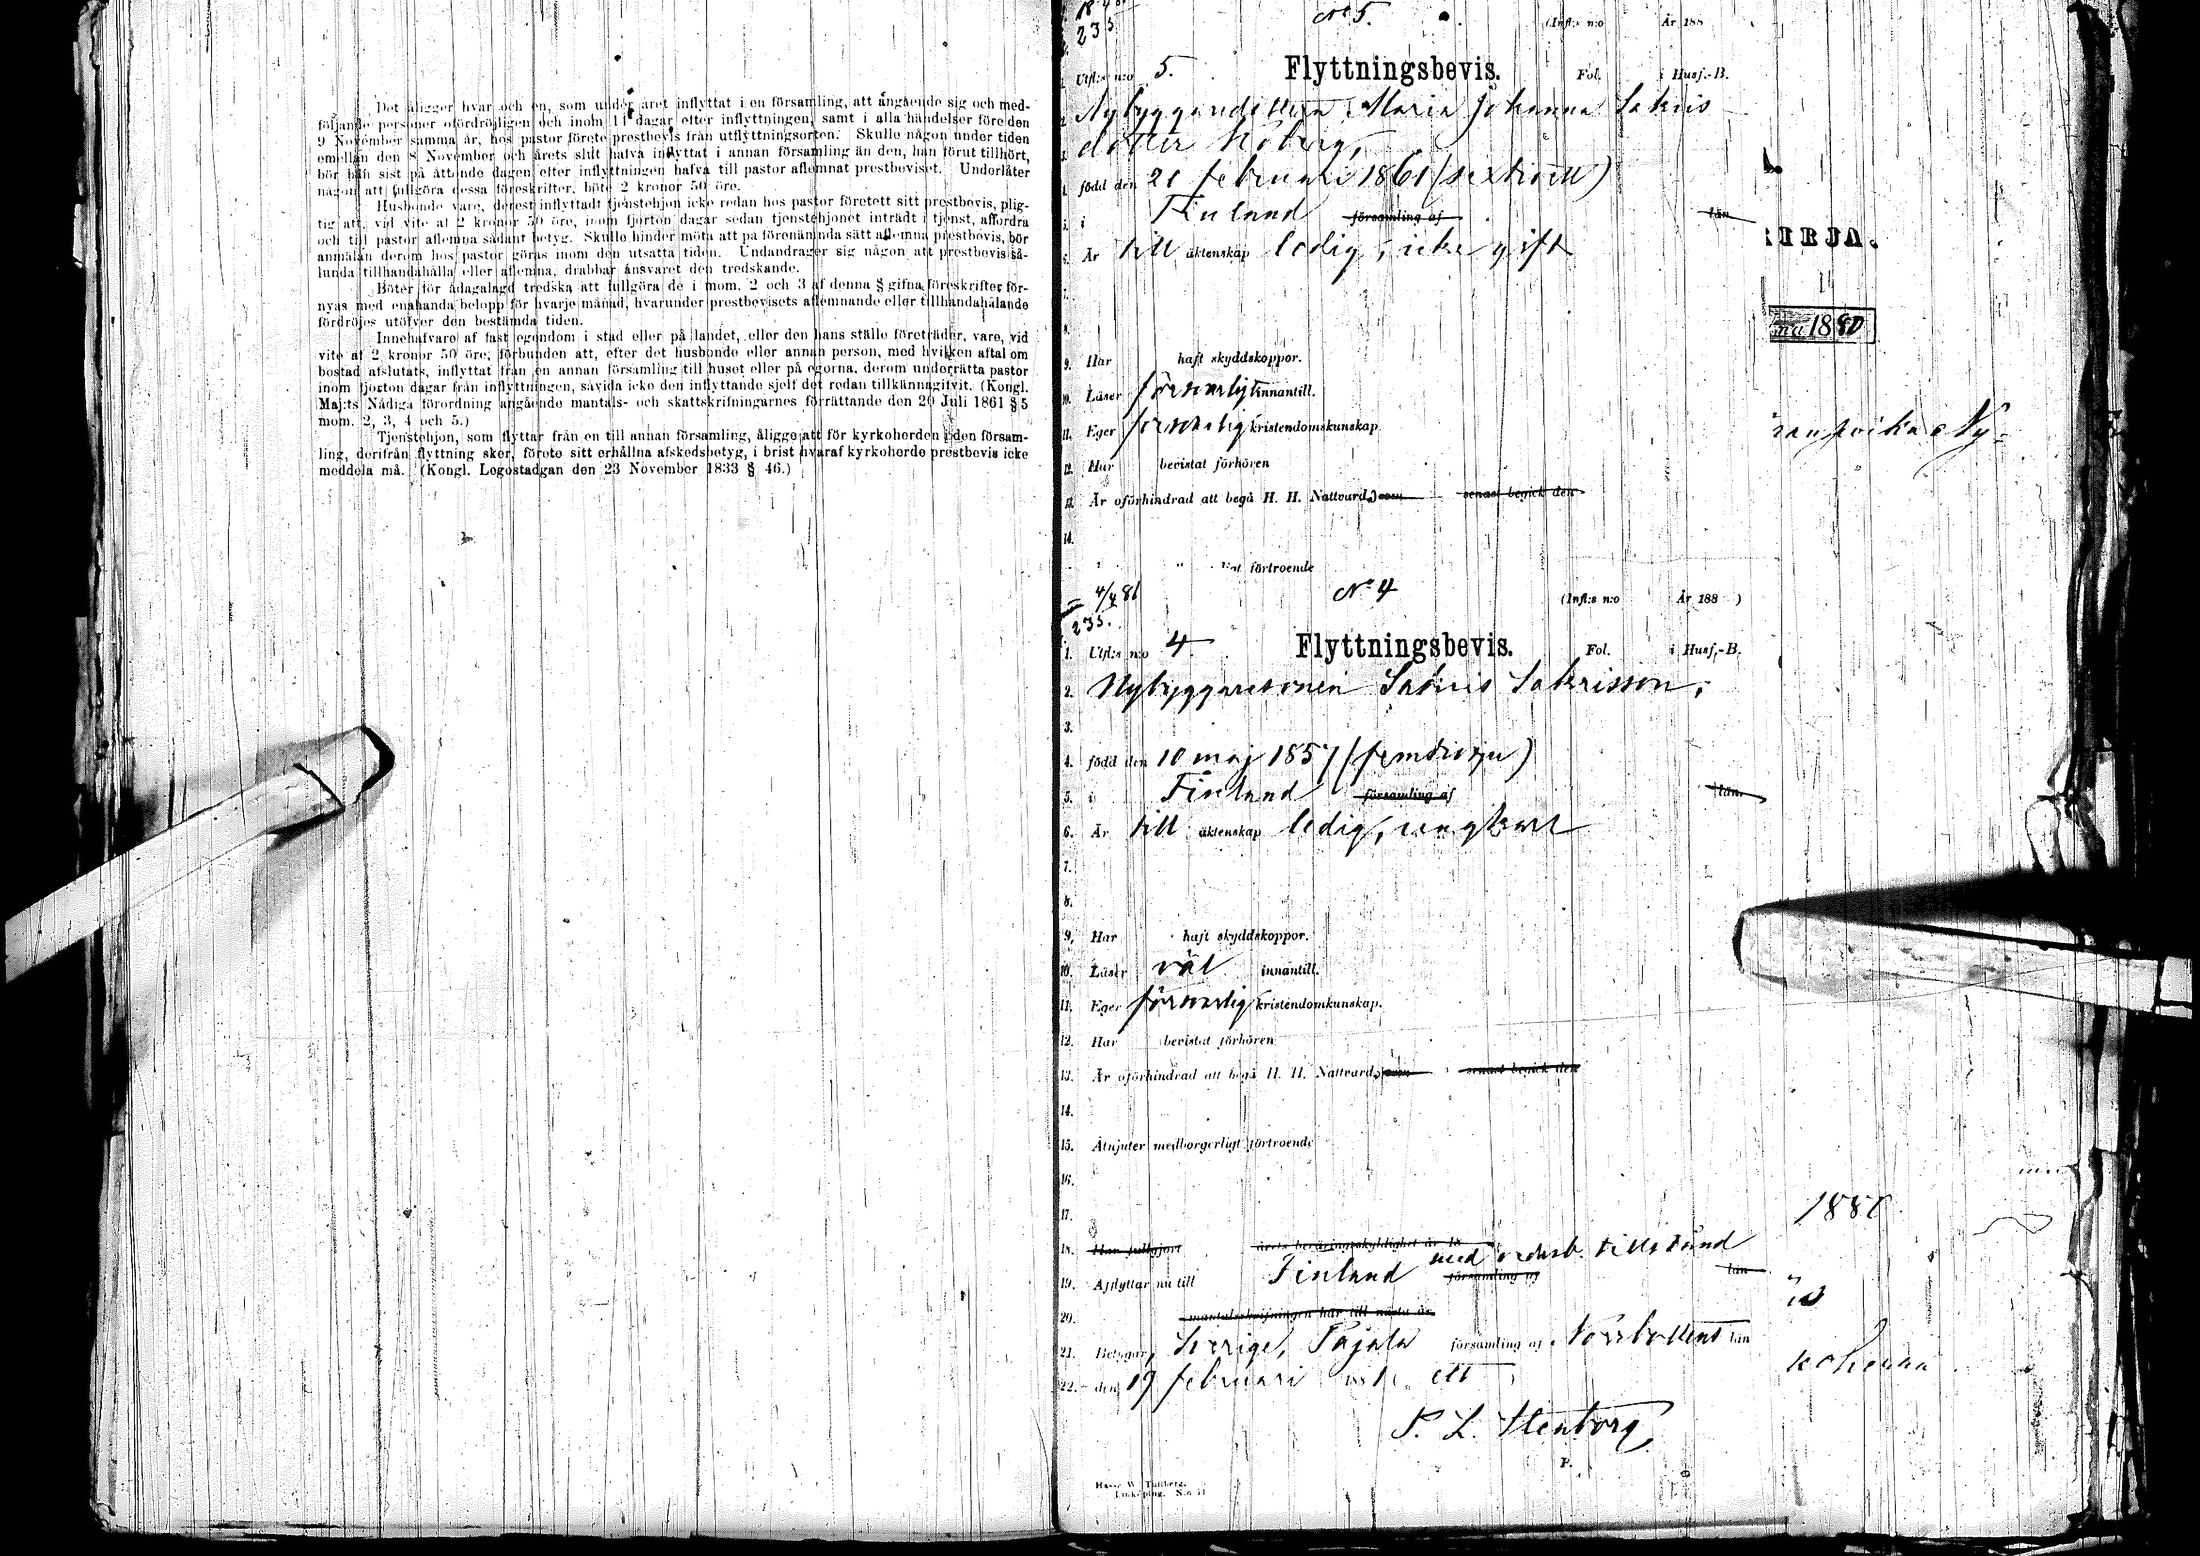 Det åligger hvar och en, som under året inflyttat i en församling, att angående sig och med-
följande personer ofördröjligen och inom 14 dagar efter inflyttningen, samt i alla händelser före den
9 November samma år, hos pastor förete prestbevis från utflyttningsorten. Skulle någon under tiden
emellan den 8 November och årets slut hafva inflyttat i annan församling än den, han förut tillhört,
bör han sist på åttonde dagen efter inflyttningen hafva till pastor aflemnat prestbeviset. Underlåter
någon att fullgöra dessa föreskrifter, böte 2 kronor 50 öre.
Husbonde vare, derest inflyttadt tjenstehjon icke redan hos pastor företett sitt prestbevis, plig-
tig att, vid vite af 2 kronor 50 öre, inom fjorton dagar sedan tjenstehjonet inträdt i tjenst, affordra
och till pastor aflemna sådant betyg. Skulle hinder möta att på förenämnda sätt aflemna prestbevis, bör
anmälan derom hos pastor göras inom den utsatta tiden. Undandrager sig någon att prestbevis så-
lunda tillhandahålla eller aflemna, drabbar ansvaret den tredskande.
Böter för ådagalagd tredska att fullgöra de i mom. 2 och 3 af denna § gifna föreskrifter för-
nyas med enahanda belopp för hvarje månad, hvarunder prestbevisets aflemnande eller tillhandahålande
fördröjes utöfver den bestämda tiden.
Innehafvare af fast egendom i stad eller på landet, eller den hans ställe företräder, vare, vid
vite af 2 kronor 50 öre, förbunden att, efter det husbonde eller annan person, med hvilken aftal om
bostad afslutats, inflyttat från en annan församling till huset eller på egorna, derom underrätta pastor
inom fjorton dagar från inflyttningen, såvida icke den inflyttande sjelf det redan tillkännagifvit. (Kongl.
Maj:ts Nådiga förordning angående mantals- och skattskrifningarnes förrättande den 20 Juli 1861 § 5
mom. 2, 3, 4 och 5.)
Tjenstehjon, som flyttar från en till annan församling, åligge att för kyrkoherden i den försam-
ling, derifrån flyttning sker, förete sitt erhållna afskedsbetyg, i brist hvaraf kyrkoherde prestbevis icke
meddela må. (Kongl. Legostadgan den 23 November 1833 § 46.)
235
No 5. (Infl:s n:o År 188
1. Utfl:s n:o 5. Flyttningsbevis. Fol. i Husf.-B.
2. Nybyggaredottern Maria Johanna Sakris
3. dotter Koberg,
4. född den 21 februari 1861 (sextioett)
5. i Finland församling af län
6. Är till äktenskap ledig, icke gift
7.
8.
9. Har haft skyddskoppor.
10. Läser försvarligt innantill.
11. Eger försvarlig kristendomskunskap
12. Har bevistat förhören
13. Är oförhindrad att begå H. H. Nattvard, som senast begick den
14.
förtroende
4/4 81 No 4 (Infl:s n:o År 188 )
235.
1. Utfl:s n:o 4. Flyttningsbevis. Fol. i Husf.-B.
2. Nybyggaresonen Sakris Sakrisson,
3.
4. född den 10 maj 1857 (femtiosju)
5. i Finland församling af län
6. Är till äktenskap ledig, ungkarl
7.
8.
9. Har haft skyddskoppor.
10. Läser väl innantill.
11. Eger försvarlig kristendomkunskap.
12. Har bevistat förhören
13. Är oförhindrad att begå H. H. Nattvard, som senast begick den
14.
15. Åtnjuter medborgerligt förtroende
16.
17.
18. Har fullgjort årets beväringsskyldighet år 18
19. Afflyttar nu till Finland med vederb. tillstånd församling af län
20. mantalsskrifningen här till nästa år
21. Betygar, Sverige, Pajala församling af Norrbottens län
22. den 19 februari 1881. ett
P. L. Stenborg
P.
Hasse W. Tullberg.
Linköping. N:o 11
1880
1881